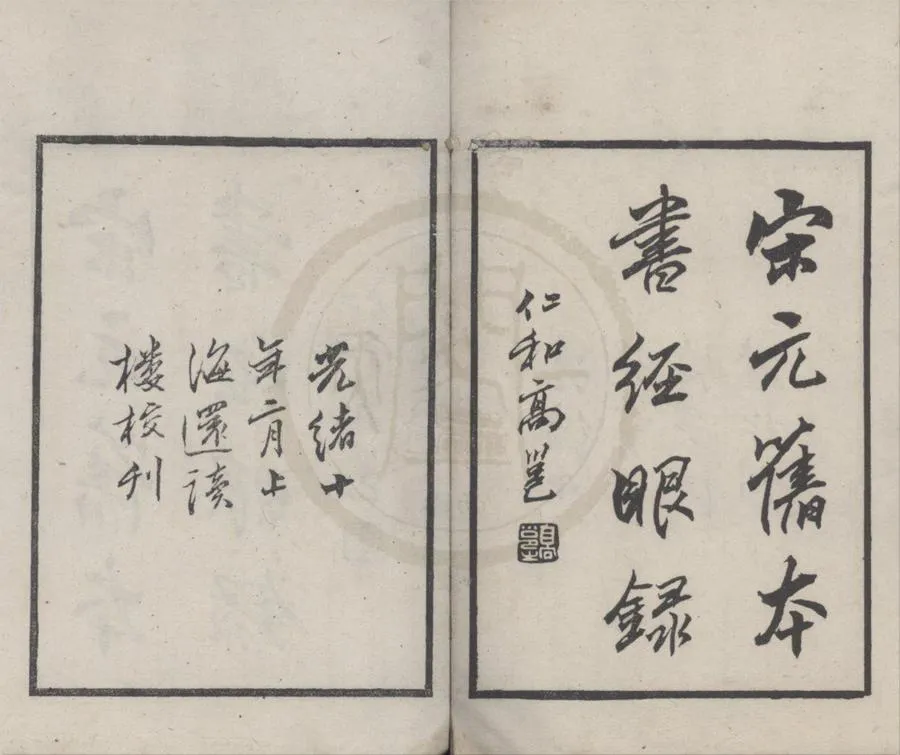 宋元舊本
書經眼録
仁和高邕
光緒十
年二月上
海還讀
樓校刊